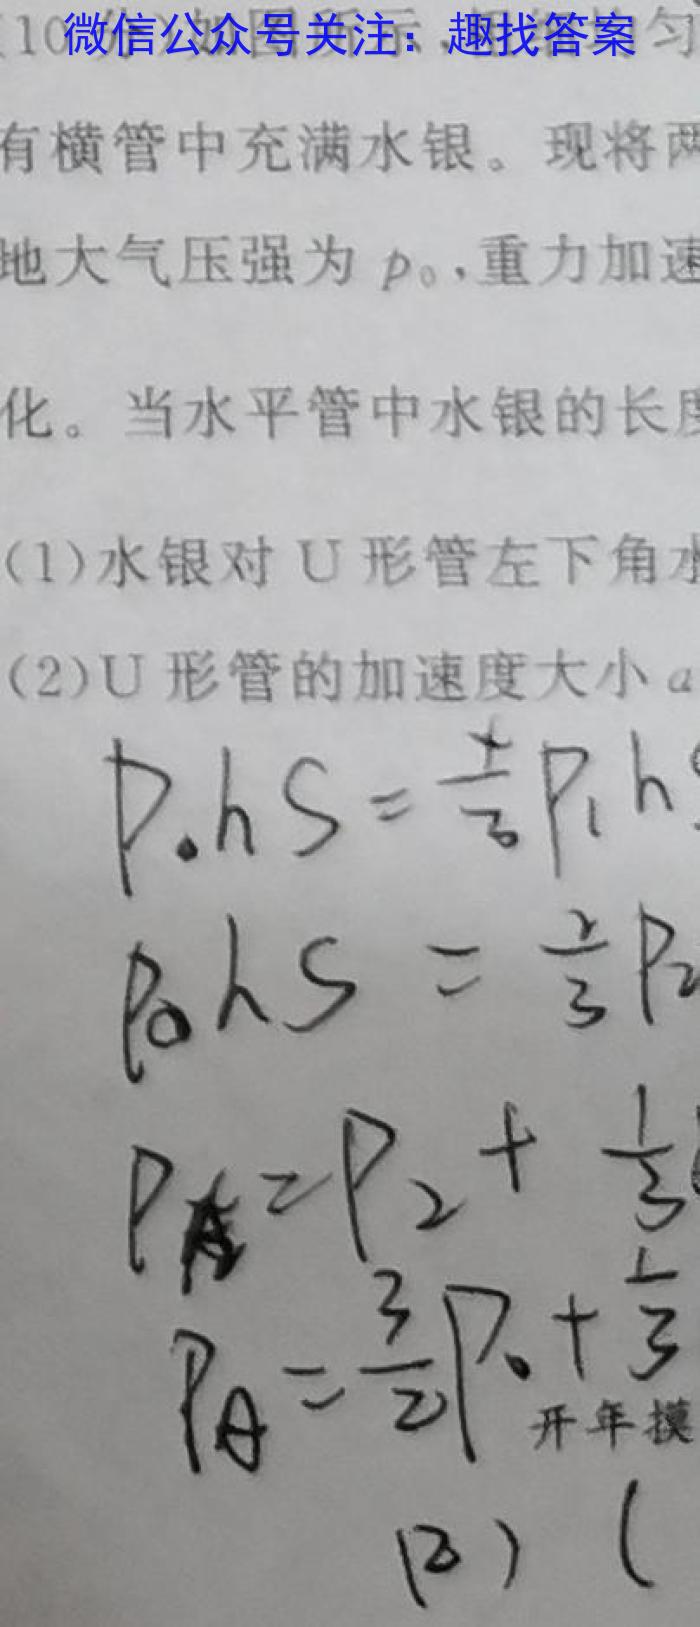 (10
微信公众号关注：趣找答案
匀
有横管中充满水银。现将两
地大气压强为 p₀,重力加速
化。当水平管中水银的长度
(1)水银对 U 形管左下角水
(2)U 形管的加速度大小 a
P₀hS = P₁h
P₀hS = 2/3 P₂
P_A = P₂ + 1/3
P_A = 3/2 P₀ + 1/3
开年摸
(2) (